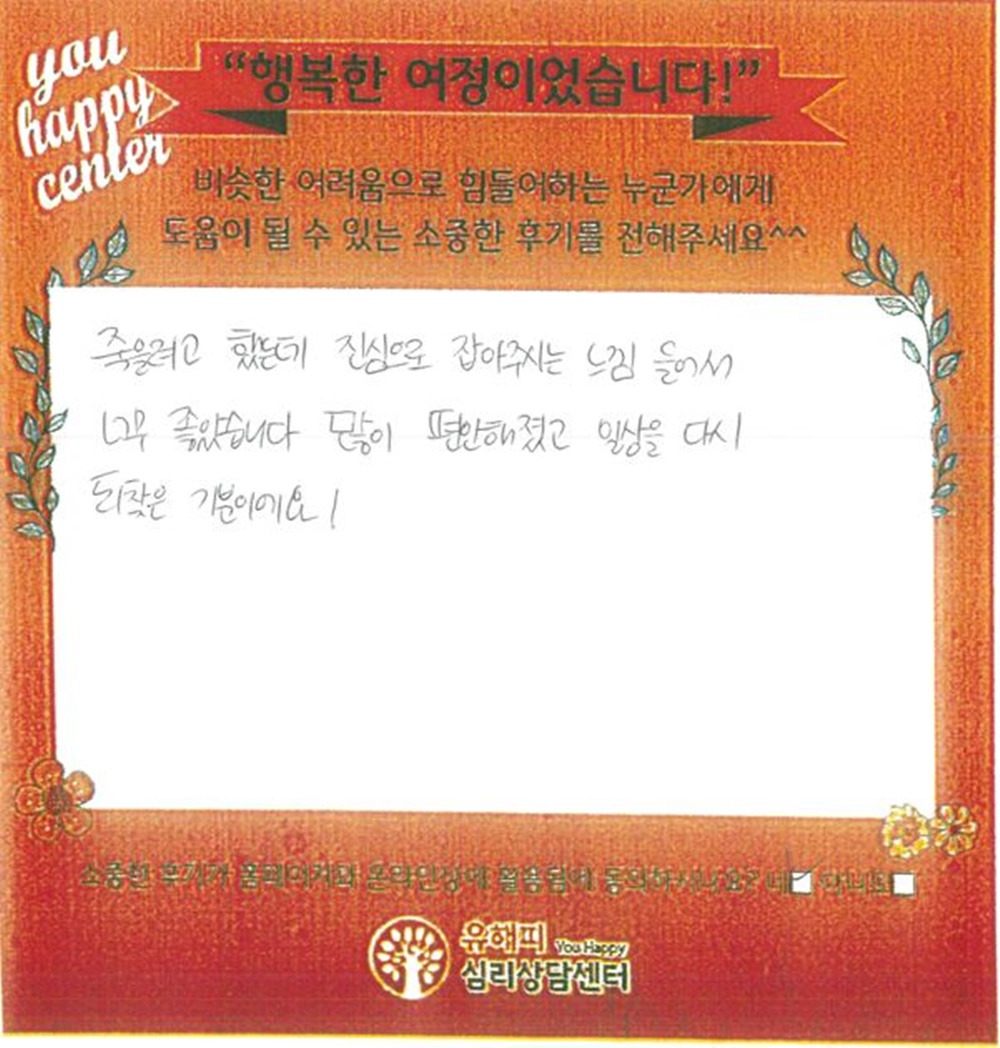 you
happy
center
“행복한 여정이었습니다!”
비슷한 어려움으로 힘들어하는 누군가에게
도움이 될 수 있는 소중한 후기를 전해주세요^^
죽을려고 했는데 진심으로 잡아주시는 느낌 들어서
너무 좋았습니다 많이 편안해졌고 일상을 다시
되찾은 기분이에요!
소중한 후기가 홈페이지와 온라인상에 활용됨에 동의하시나요? 네 아니요
유해피 You Happy
심리상담센터